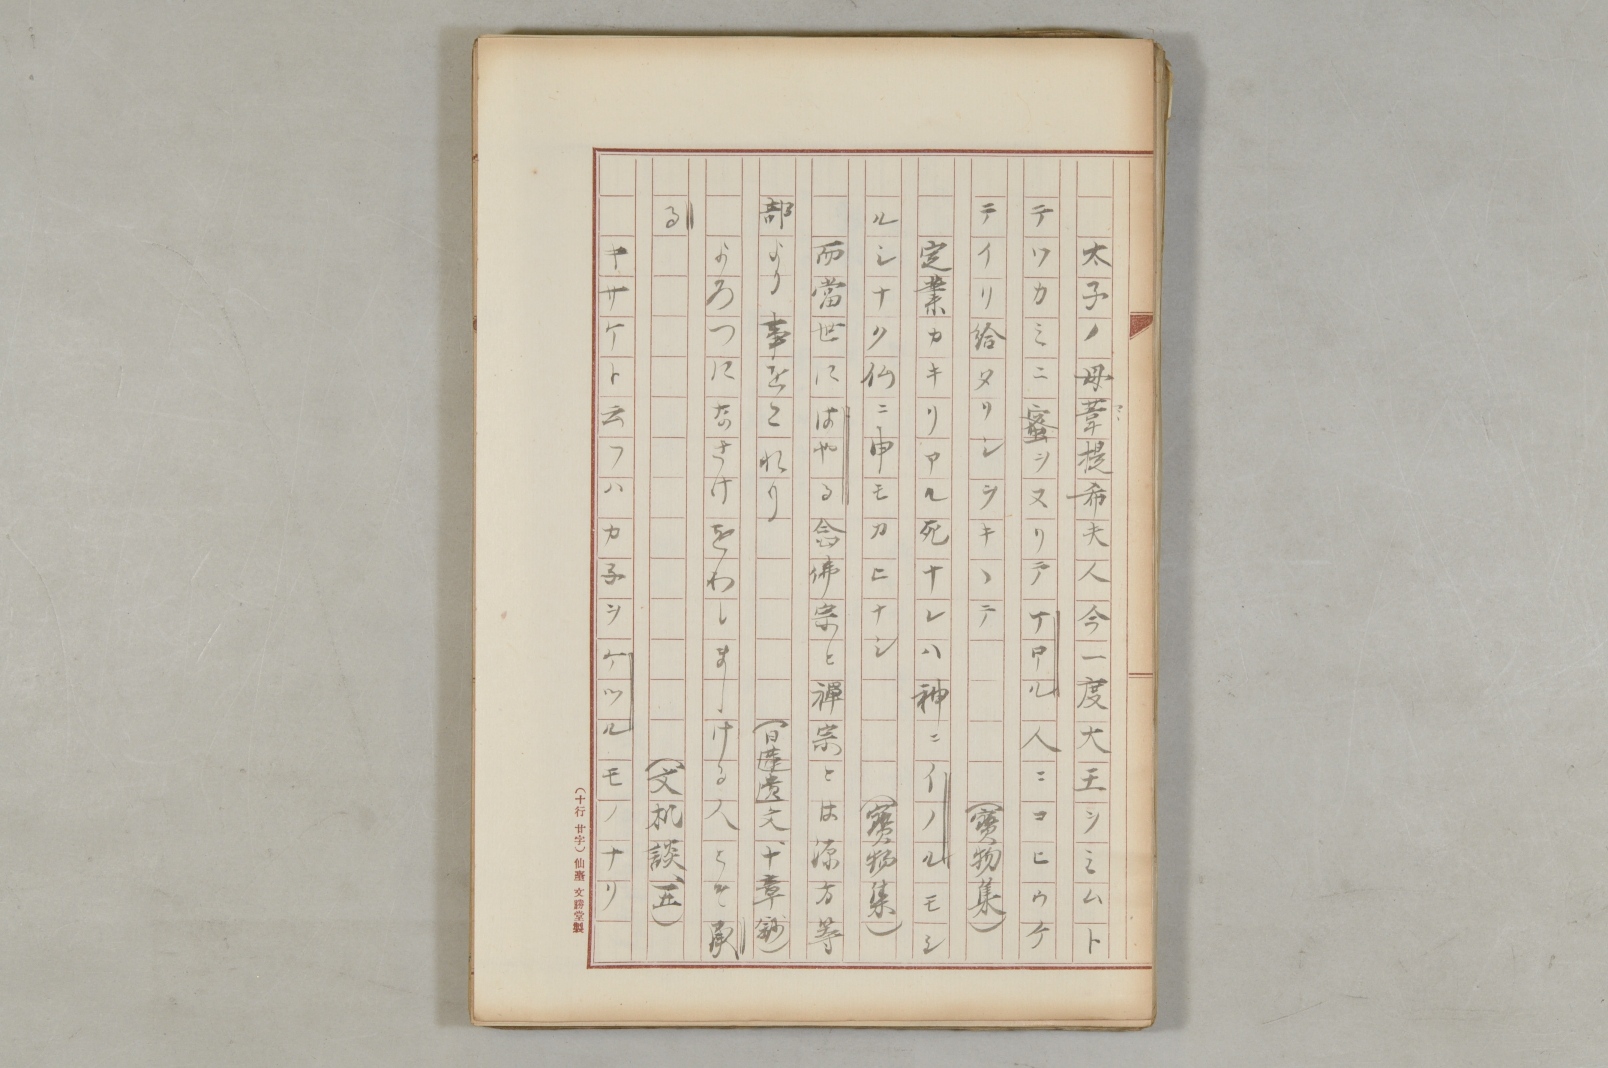 太子ノ母韋提希夫人今一度大王シミムト
テワカミニ蜜シヌリテナアル人ニコヒウケ
テイリ給タリシヲキヽテ
(寶物集)
定業カキリアル死ナレハ神ニイノルモシ
ルシナク仏ニ申モカヒナシ
(寶物集)
而當世にはやる念佛宗と禪宗とは源方等
部より事をこれり
(日蓮遺文、十章鈔)
よろつになさけをわしましける人とそ承
る
(文机談、五)
キサケト云フハカ子ヲケツルモノナリ
(十行 廿字) 仙臺 文勝堂製